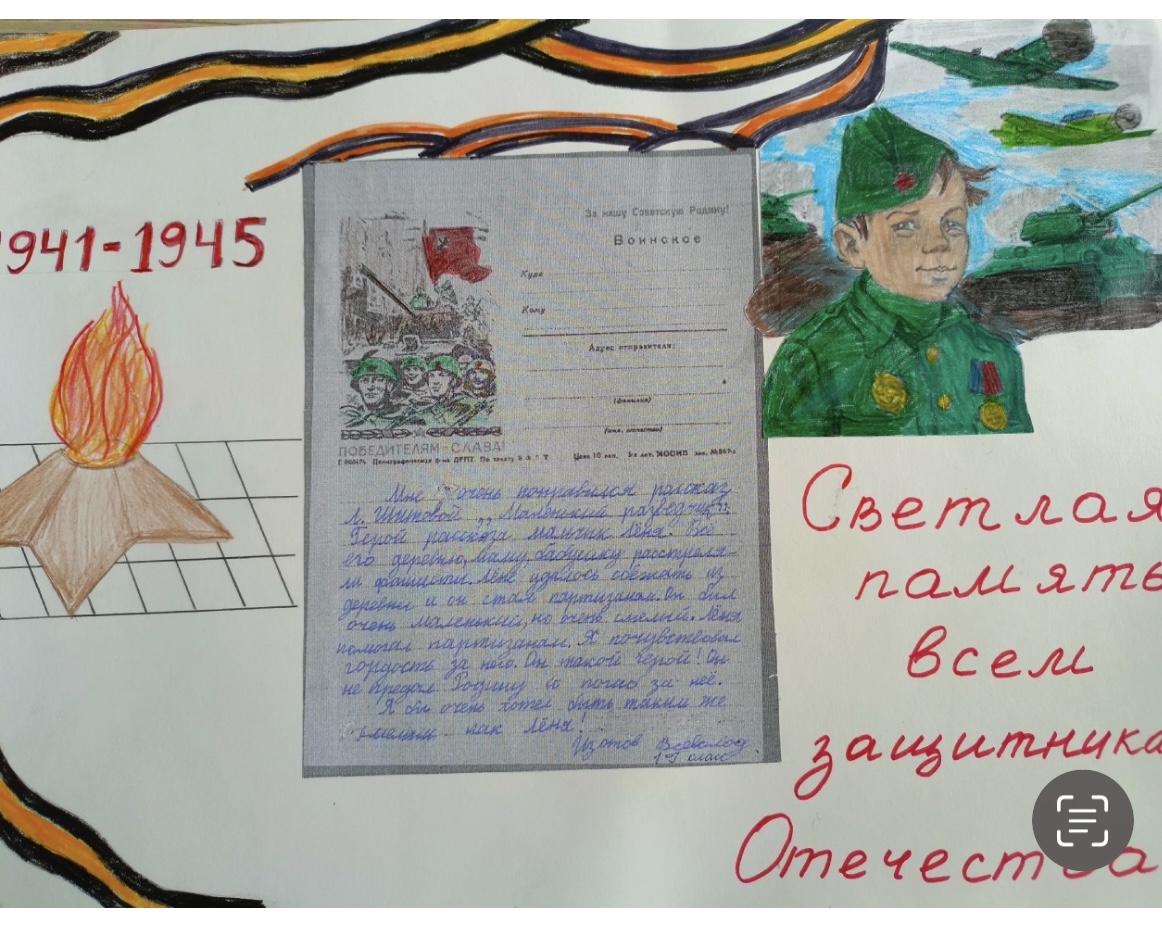 1941-1945
За нашу Советскую Родину!
Воинское
Куда
Кому
Адрес отправителя:
(фамилия)
(имя, отчество)
ПОБЕДИТЕЛЯМ-СЛАВА!
Цена 10 коп.
Мне очень понравился рассказ
Л. „Маленький разведчик".
Герой рассказа мальчик Лёня. Всю
его деревню, маму, бабушку расстреля-
ли фашисты. Лёне удалось сбежать из
деревни и он стал партизаном. Он был
очень маленький, но очень смелый. Лёня
помогал партизанам. Я почувствовал
гордость за него. Он такой герой! Он
не предал Родину и погиб за неё.
Я бы очень хотел быть таким же
смелым как Лёня!
Изотов Всеволод
1 класс
Светлая
память
всем
защитника
Отечества